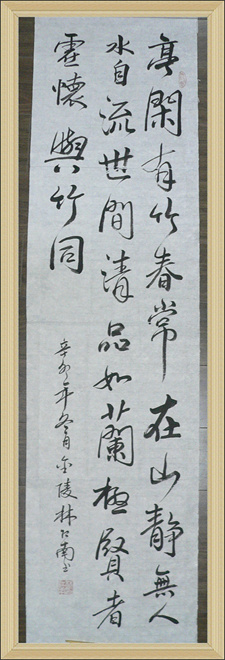 亭閑有竹春常在山靜無人
水自流世間清品如蘭極賢者
虛懷與竹同
辛卯年冬月金陵林